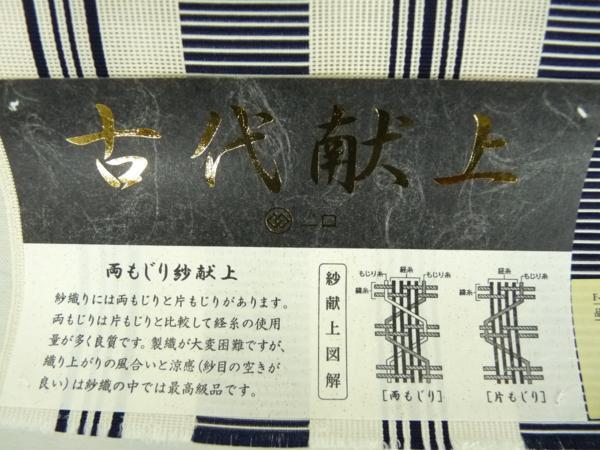 古代献上
二口
両もじり紗献上
紗織りには両もじりと片もじりがあります。
両もじりは片もじりと比較して経糸の使用
量が多く良質です。製織が大変困難ですが、
織り上がりの風合いと涼感(紗目の空きが
良い)は紗織の中では最高級品です。
紗献上図解
もじり糸 経糸 もじり糸
緯糸
[両もじり]
経糸 もじり糸
緯糸
[片もじり]